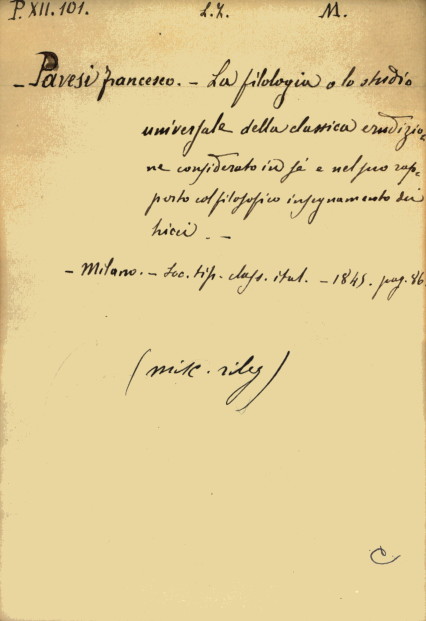 P. XII. 101. L. Z. M.
- Pavesi francesco. - La filologia o lo studio
universale della classica erudizio-
ne considerato in sé e nel suo rap-
porto col filosofico insegnamento dei
licei -
- Milano. - Soc. tip. class. ital. - 1845. pag. 86.
(misc. rileg)
C